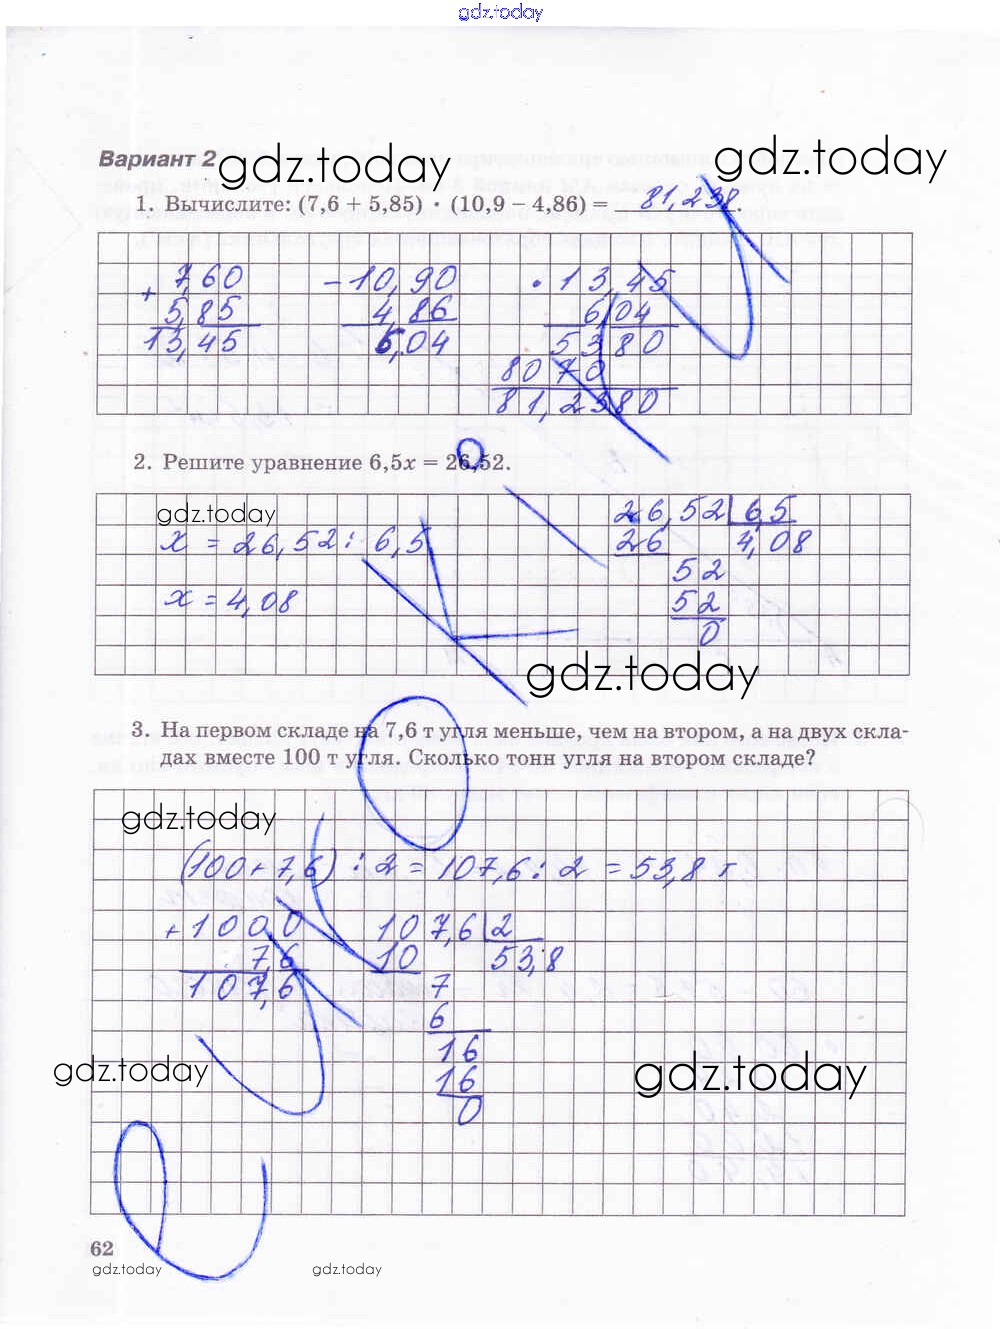 gdz.today
Вариант 2
gdz.today
gdz.today
1. Вычислите: (7,6 + 5,85) · (10,9 – 4,86) = 81,238.
+ 7,60
5,85
13,45
– 10,90
4,86
6,04
· 13,45
6,04
5380
8070
81,2380
2. Решите уравнение 6,5x = 26,52.
gdz.today
x = 26,52 : 6,5
x = 4,08
26,52 6,5
26 4,08
52
52
0
gdz.today
3. На первом складе на 7,6 т угля меньше, чем на втором, а на двух скла-
дах вместе 100 т угля. Сколько тонн угля на втором складе?
gdz.today
(100+7,6) : 2 = 107,6 : 2 = 53,8 т
+ 1000
7,6
107,6
107,6 2
10 53,8
7
6
16
16
0
gdz.today
gdz.today
62
gdz.today
gdz.today